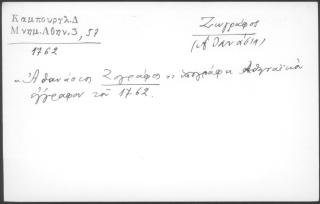 Καμπουργλ.Δ
Μνημ.Αθην.3, 57
1762
Ζωγράφος
(Αθανάσιος)
"Αθανάσιος Ζογράφος" υπογράφει Αθηναϊκὸν
ἔγγραφον τοῦ 1762.